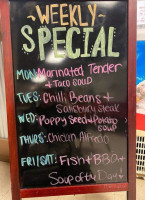 WEEKLY
SPECIAL
MON: Marinated Tender
+ Taco Soup
TUES: Chilli Beans +
Salisbury Steak
WED: Poppy Seed + Potato
Soup
THURS: Chicken Alfredo
FRI/SAT: Fish + BBQ +
Soup of the Day